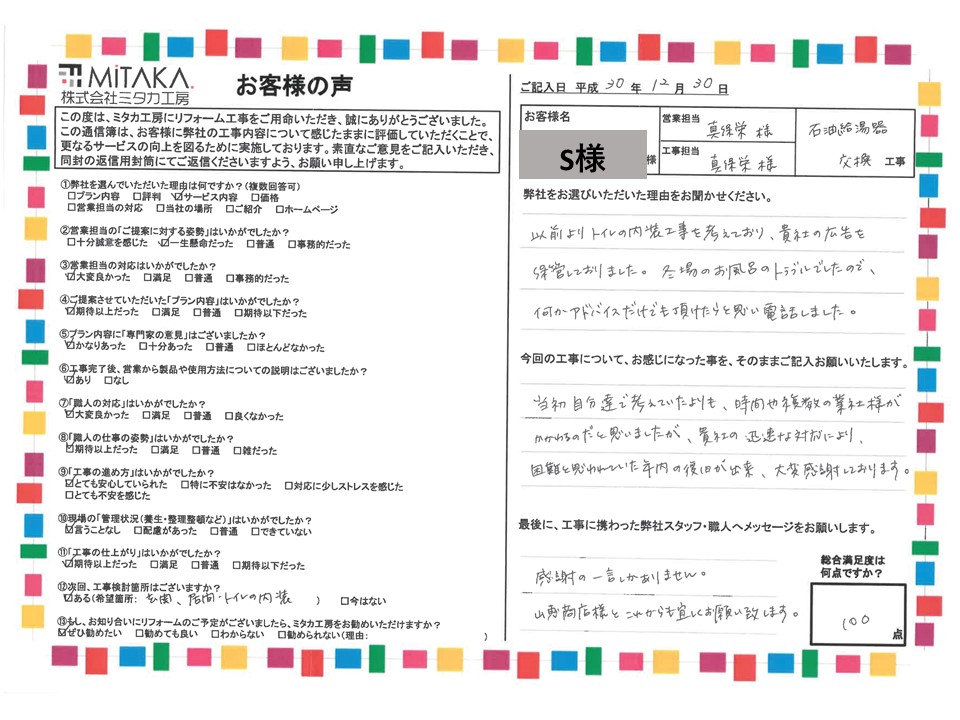 MiTAKA.
株式会社ミタカ工房
お客様の声
この度は、ミタカ工房にリフォーム工事をご用命いただき、誠にありがとうございました。
この通信簿は、お客様に弊社の工事内容について感じたままに評価していただくことで、
更なるサービスの向上を図るために実施しております。率直なご意見をご記入いただき、
同封の返信用封筒にてご返信くださいますよう、お願い申し上げます。
①弊社を選んでいただいた理由は何ですか?(複数回答可)
□プラン内容 □評判 ☑サービス内容 □価格
□営業担当の対応 □当社の場所 □ご紹介 □ホームページ
②営業担当の「ご提案に対する姿勢」はいかがでしたか?
□十分誠意を感じた ☑一生懸命だった □普通 □事務的だった
③営業担当の対応はいかがでしたか?
☑大変良かった □満足 □普通 □事務的だった
④ご提案させていただいた「プラン内容」はいかがでしたか?
☑期待以上だった □満足 □普通 □期待以下だった
⑤プラン内容に「専門家の意見」はございましたか?
☑かなりあった □十分あった □普通 □ほとんどなかった
⑥工事完了後、営業から製品や使用方法についての説明はございましたか?
☑あり □なし
⑦「職人の対応」はいかがでしたか?
☑大変良かった □満足 □普通 □良くなかった
⑧「職人の仕事の姿勢」はいかがでしたか?
☑期待以上だった □満足 □普通 □雑だった
⑨「工事の進め方」はいかがでしたか?
☑とても安心していられた □特に不安はなかった □対応に少しストレスを感じた
□とても不安を感じた
⑩現場の「管理状況(養生・整理整頓など)」はいかがでしたか?
☑言うことなし □配慮があった □普通 □できていない
⑪「工事の仕上がり」はいかがでしたか?
☑期待以上だった □満足 □普通 □期待以下だった
⑫次回、工事検討箇所はございますか?
☑ある(希望箇所: 玄関、居間・トイレの内装 ) □今はない
⑬もし、お知り合いにリフォームのご予定がございましたら、ミタカ工房をお勧めいただけますか?
☑ぜひ勧めたい □勧めても良い □わからない □勧められない(理由: )
ご記入日 平成 30 年 12 月 30 日
お客様名 S様 様
営業担当 真保栄 様
工事担当 真保栄 様
石油給湯器
交換 工事
弊社をお選びいただいた理由をお聞かせください。
以前よりトイレの内装工事を考えており、貴社の広告を
しておりました。冬場のお風呂のトラブルでしたので、
何かアドバイスだけでも頂けたらと思い電話しました。
今回の工事について、お感じになった事を、そのままご記入お願いいたします。
当初自分達で考えていたよりも、時間や複数の業社様が
かかわるのだと思いましたが、貴社の迅速な対応により、
困難と思われていた年内の復旧が出来、大変感謝しております。
最後に、工事に携わった弊社スタッフ・職人へメッセージをお願いします。
感謝の一言しかありません。
商店様とこれからも宜しくお願い致します。
総合満足度は
何点ですか?
100 点